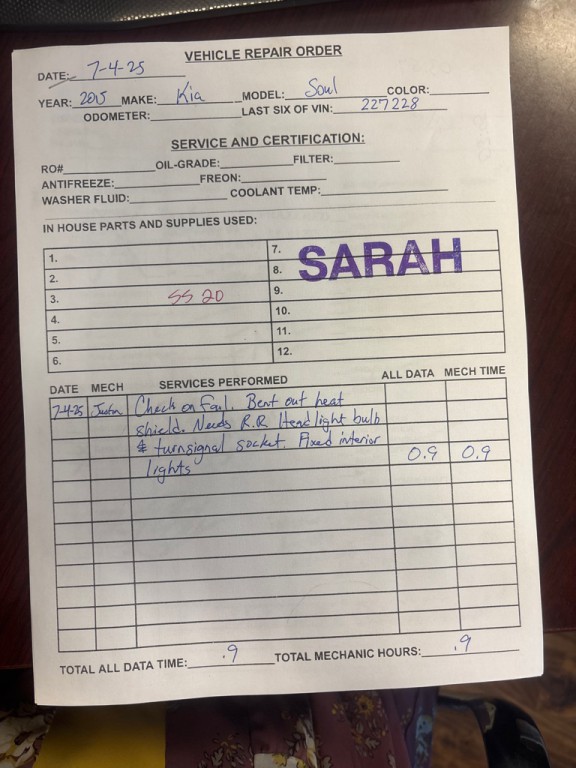 VEHICLE REPAIR ORDER
DATE: 7-4-25
YEAR: 2015 MAKE: Kia MODEL: Soul COLOR:
ODOMETER: LAST SIX OF VIN: 227228
SERVICE AND CERTIFICATION:
RO# OIL-GRADE: FILTER:
ANTIFREEZE: FREON:
WASHER FLUID: COOLANT TEMP:
IN HOUSE PARTS AND SUPPLIES USED:
1. 7.
2. 8. SARAH
3. SS 20 9.
4. 10.
5. 11.
6. 12.
DATE MECH SERVICES PERFORMED ALL DATA MECH TIME
7-4-25 Justin Check on Fail. Bent out heat
shield. Needs R.R Headlight bulb
& turnsignal socket. Fixed interior 0.9 0.9
lights
TOTAL ALL DATA TIME: .9 TOTAL MECHANIC HOURS: .9